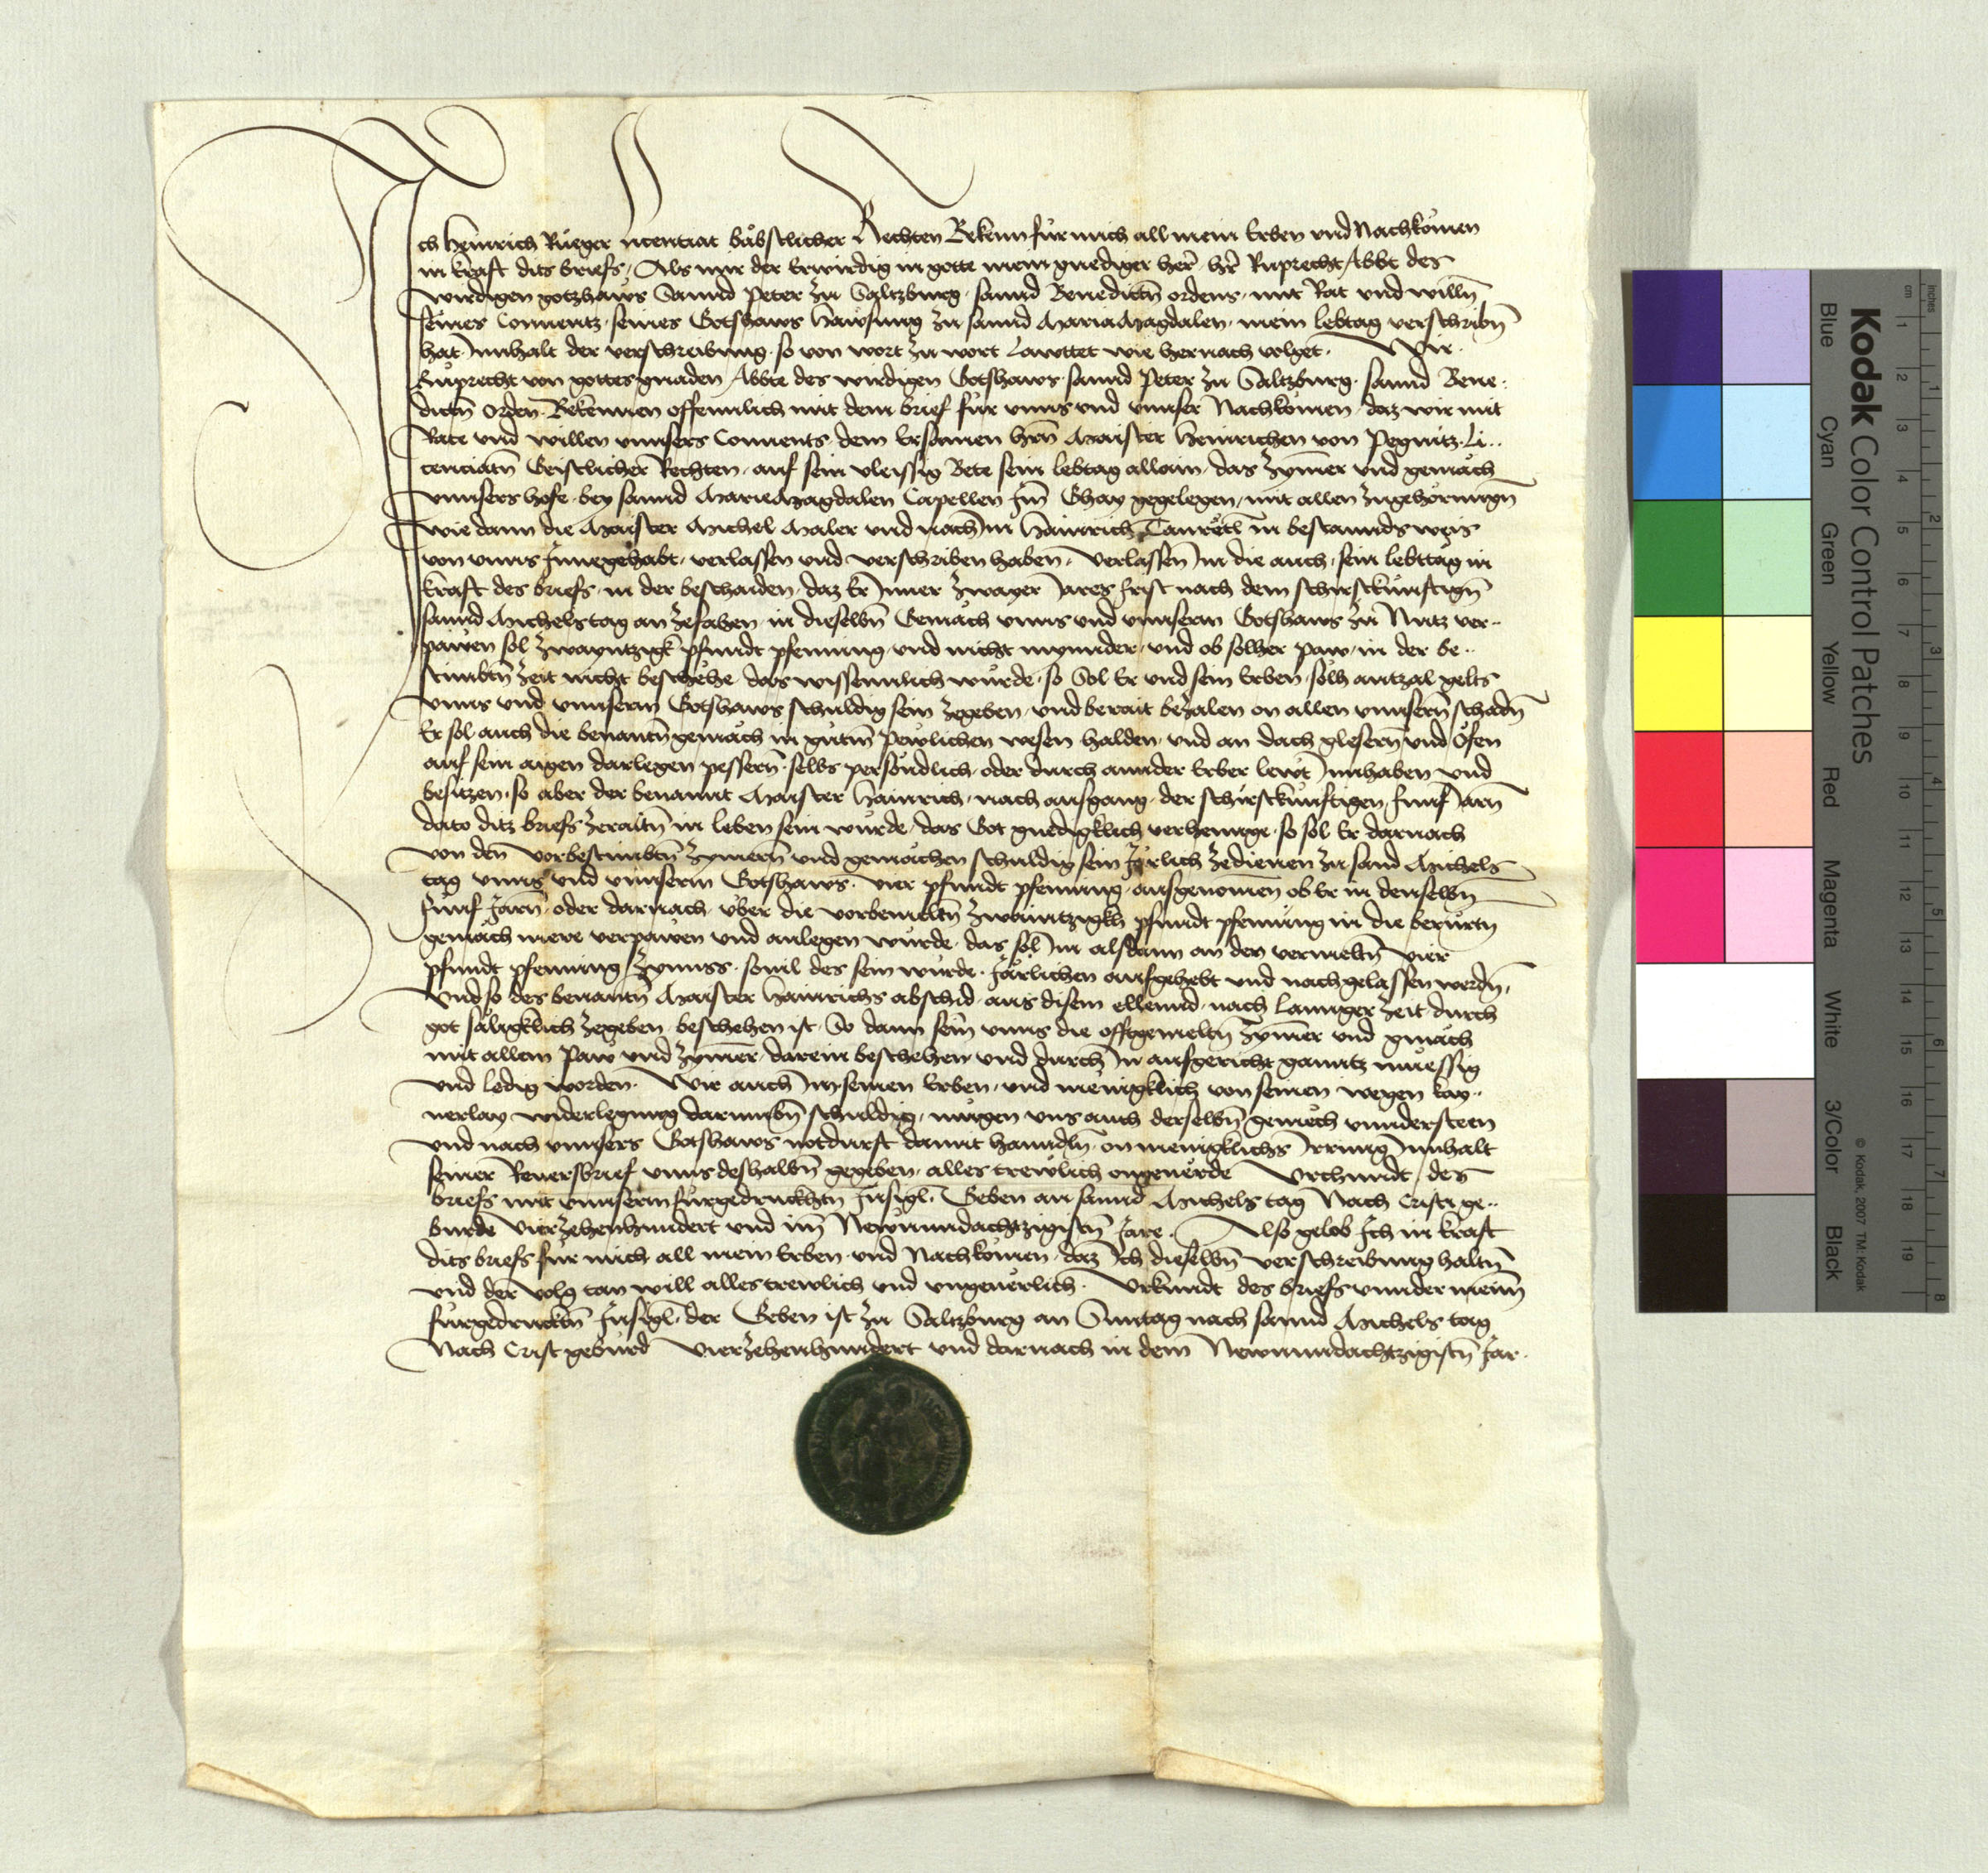 Ich Heinrich Rüeger licentiat båbstlicher Rechten Bekenn fur mich all mein Erben vnd Nachkomen
in kraft dits briefs, Als mir der Erwirdig in gotte mein gnediger her, her Ruprecht Abbt des
wirdigen gotzhaws Sannd Peter zu Saltzburg, sannd Benedictn ordens, mit Rat vnd willn
seines Conuentz, seines Gotshaws hawsung zu sannd Maria Magdalen, mein lebtag verschribn
hat, Innhalt der verschreibung, so von wort zu wort lawttet wie hernach volget. Wir
Ruprecht von gottes gnaden Abbte des wirdigen Gotshaws sannd Peter zu Saltzburg, sannd Bene-
dictn Orden, Bekennen offennlich mit dem brief fur vnns vnd vnnser Nachkomen, daz wir mit
Rate vnd willen vnnsers Conuents dem Ersamen hrn Maister Heinrichen von Pegnitz, Li-
cenciatn Geistlicher Rechten, auf sein vleissig Bete sein lebtag allain, das zymer vnd gemåch
vnnsers hofs, bey sannd Maria Magdalen Capellen Im Ghay gegelegen, mit allen zugehörungn
wie dann die Maister Michel Maler vnd nach Im Hainrich in bestannds weis
von vnns Innegehabt, verlassen vnd verschriben haben, verlassen Im die auch, sein lebttag in
kraft des briefs, in der beschaiden, daz Er Inner zwayer Jares frist nach dem schirstkunftign
sannd Michelstag anzefahen, in dieselbn Gemåch vnns vnd vnnserm Gotshaws zu Nutz ver-
pawen sol zwayntzigk pfundt pfenning, vnd nicht mynnder, vnd ob solher paw, in der be-
stimbtn zeit nicht beschehe, das wissennlich wurde, so Sol Er vnd sein Erben, solh antzal gelts
vnns vnd vnnserm Gotshaws schuldig sein zegeben, vnd berait bezalen on allen vnnsern schadn
Er sol auch die benantn gemåch in gutm pewlichen wesen halden, vnd an dach glesern vnd Öfen
auf sein aigen darlegen pessern, selbs persondlich, oder durch annder Erber lewt Innhaben vnd
besitzen, so aber der benannt Maister Hainrich, nach ausgang, der schirstkunftigen funf Jarn
dato ditz briefs zeraitn in leben sein wurde, das Got gnedigklich verhennge, so sol Er darnach
von den vorbestimbtn zymern vnd gemåchen schuldig sein Jarlich zedienen zu sand Michels
tag vnns vnd vnnserm Gotshaws, vier pfundt pfenning, ausgenomen ob Er in denselbn
funf Jarn, oder darnach, über die vorbemeltn zwaintzigkh pfundt pfenning in die berürtn
gemåch mere verpawen vnd anlegen wurde, das sol Im alsdann an den vermeltn vier
pfundt pfenning Zynnss, souil des sein wurde, Jårlichen aufgehebt vnd nachgelassen werdn,
Vnd so des benantn Maister Hainrichs abschid, aus disem ellennd, nach lannger zeit, durch
got såligklich zegeben, beschehen ist, So dann sein vnns die offtgemeltn zymer vnd gmåch
mit allem Paw vnd zymer, darein beschehen vnd durch In aufgericht ganntz muessig
vnd ledig worden. Wir auch Im, seinen Erben, vnd menigklich von seinen wegen kay-
nerlay widerlegung darumbn schuldig, mugen vns auch derselbn gemech vnndersteen
vnd nach vnnsers Gotshaws notdurft damit hanndln, on menigklichs Irrung Innhalt
seiner Reuersbrief vnns deshalbn gegeben, alles trewlich ongeuerde Vrchundt des
briefs mit vnnserm furgedruckhtn Insigl. Geben an sannd Michels tag Nach Cristi ge-
burde Vierzehenhundert vnd im Newnundachtzigistn Jare. Also gelob Ich in kraft
dits briefs fur mich all mein Erben vnd Nachkomen, daz Ich dieselbn verschreibung haltn
vnd der volg tan will alles trewlich vnd vngeuerlich. Vrkundt des briefs vnnder meinm
furgedrucktn Insigl, der Geben ist zu Saltzburg an Sunntag nach sannd Michels tag
Nach Crist geburd Vierzehenhundert vnd darnach in dem Newnundachtzigistn Jar.
Kodak Color Control Patches
Blue Cyan Green Yellow Red Magenta White 3/Color Black
© Kodak, 2007 TM: Kodak
cm 1 2 3 4 5 6 7 8 9 10 11 12 13 14 15 16 17 18 19
Inches 1 2 3 4 5 6 7 8